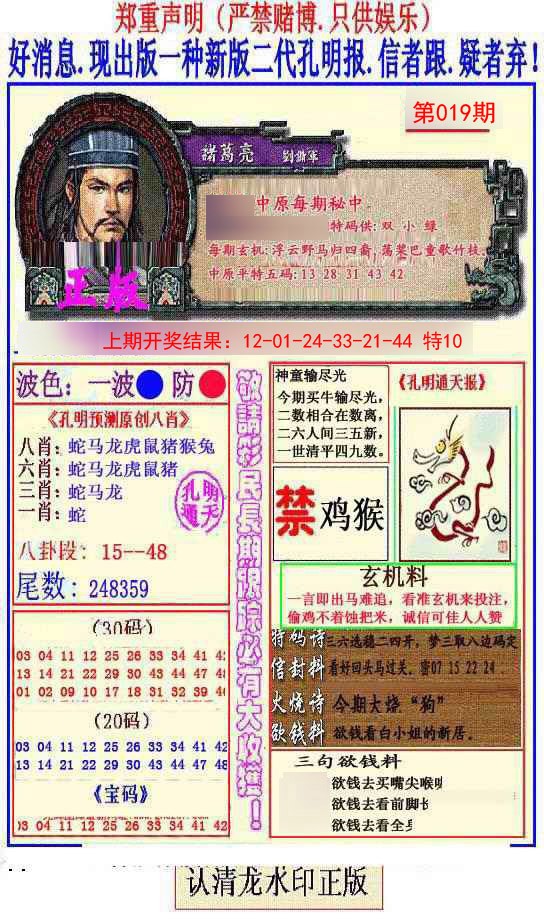 郑重声明（严禁赌博.只供娱乐）
好消息.现出版一种新版二代孔明报.信者跟.疑者弃!
第019期
諸葛亮
中原每期秘中.
特码供: 双 小 绿
每期玄机:浮云野马归四裔,荡桨巴童歌竹枝.
中原平特五码: 13 28 31 43 42
正版
上期开奖结果：12-01-24-33-21-44 特10
波色：一波 防
《孔明预测原创八肖》
八肖：蛇马龙虎鼠猪猴兔
六肖：蛇马龙虎鼠猪
三肖：蛇马龙
一肖：蛇
孔明
通天
八卦段：15--48
尾数：248359
(30码)
03 04 11 12 25 26 33 34 41 42
13 14 21 22 24 28 29 36 38 46
01 02 09 10 17 18 31 32 39
(20码)
03 04 11 12 25 26 33 34 41 42
13 14 21 22 24 28 29 36 38 46
《宝码》
03 04 11 12 25 26 33 34 41 42
敬請彩民長期跟踪必有大收獲！
神童输尽光
今期买牛输尽光，
二数相合在数离，
二六人间三五新，
一世清平四九数。
《孔明通天报》
禁 鸡猴
玄机料
一言即出马难追，看准玄机来投注，
偷鸡不着蚀把米，诚信可佳人人赞
特码诗 三六选穗二四开，梦三取八边码定
信封料 看好回头马过关.密07 15 22 24
火烧诗 今期大烧“狗”
欲钱料 欲钱看白小姐的新居。
三句欲钱料
欲钱去买嘴尖喉
欲钱去看前脚
欲钱去看全
认清龙水印正版